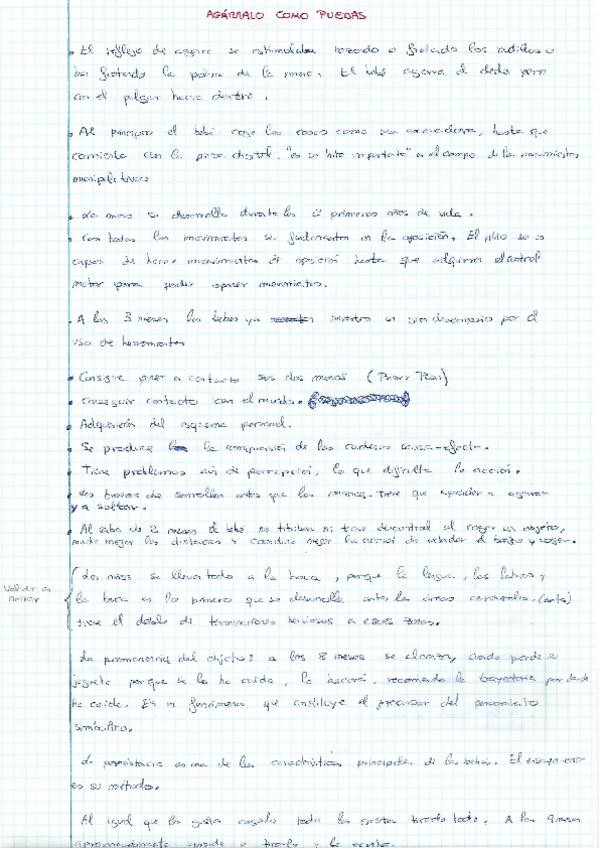 AGÁRRALO COMO PUEDAS
• El reflejo de agarre se estimulaba rozando o frotando los nudillos o
bien frotando la palma de la mano. El bebé agarra el dedo pero
con el pulgar hacia dentro.
• Al principio el bebé coge las cosas como una, hasta que
comienza con la pinza digital. "es un hito importante" en el campo de los movimientos
manipulativos
• La mano se desarrolla durante los primeros años de vida.
• Casi todos los movimientos se fundamentan en la oposición. El niño no es
capaz de hacer movimientos de oposición hasta que adquiera el control
motor para poder oponer movimientos.
• A los 3 meses los bebés ya muestran un gran por el
uso de herramientas
• Consigue poner en contacto sus dos manos
• Conseguir contacto con el mundo.
• Adquisición del esquema personal.
• Se produce la comprensión de las causa-efecto.
• Tiene problemas aún de percepción, lo que dificulta la acción.
• Los brazos se desarrollan antes que las manos. Tiene que aprender a agarrar
y a soltar.
• Al cabo de 2 meses el bebé no titubea ni tiene al coger un objeto,
mide mejor las distancias y coordina mejor la acción de extender el brazo y coger.
Volver a
mirar
Los niños se llevan todo a la boca, porque la lengua, los labios y
la boca es lo primero que se desarrolla, antes las áreas cerebrales. (antes)
tiene el doble de terminaciones nerviosas a esas zonas.
La permanencia del objeto: a los 8 meses se alcanza, cuando pierde el
juguete porque se le ha caído, lo buscará, recorriendo la trayectoria por donde
ha caído. Es un fenómeno que constituye el precursor del pensamiento
simbólico.
La persistencia es una de las características principales de los bebés. El ensayo-error
es su método.
Al igual que les gusta cogerlo todo les gusta tirarlo todo. A los 9 meses
aproximadamente aprende a tirarlo y le encanta.